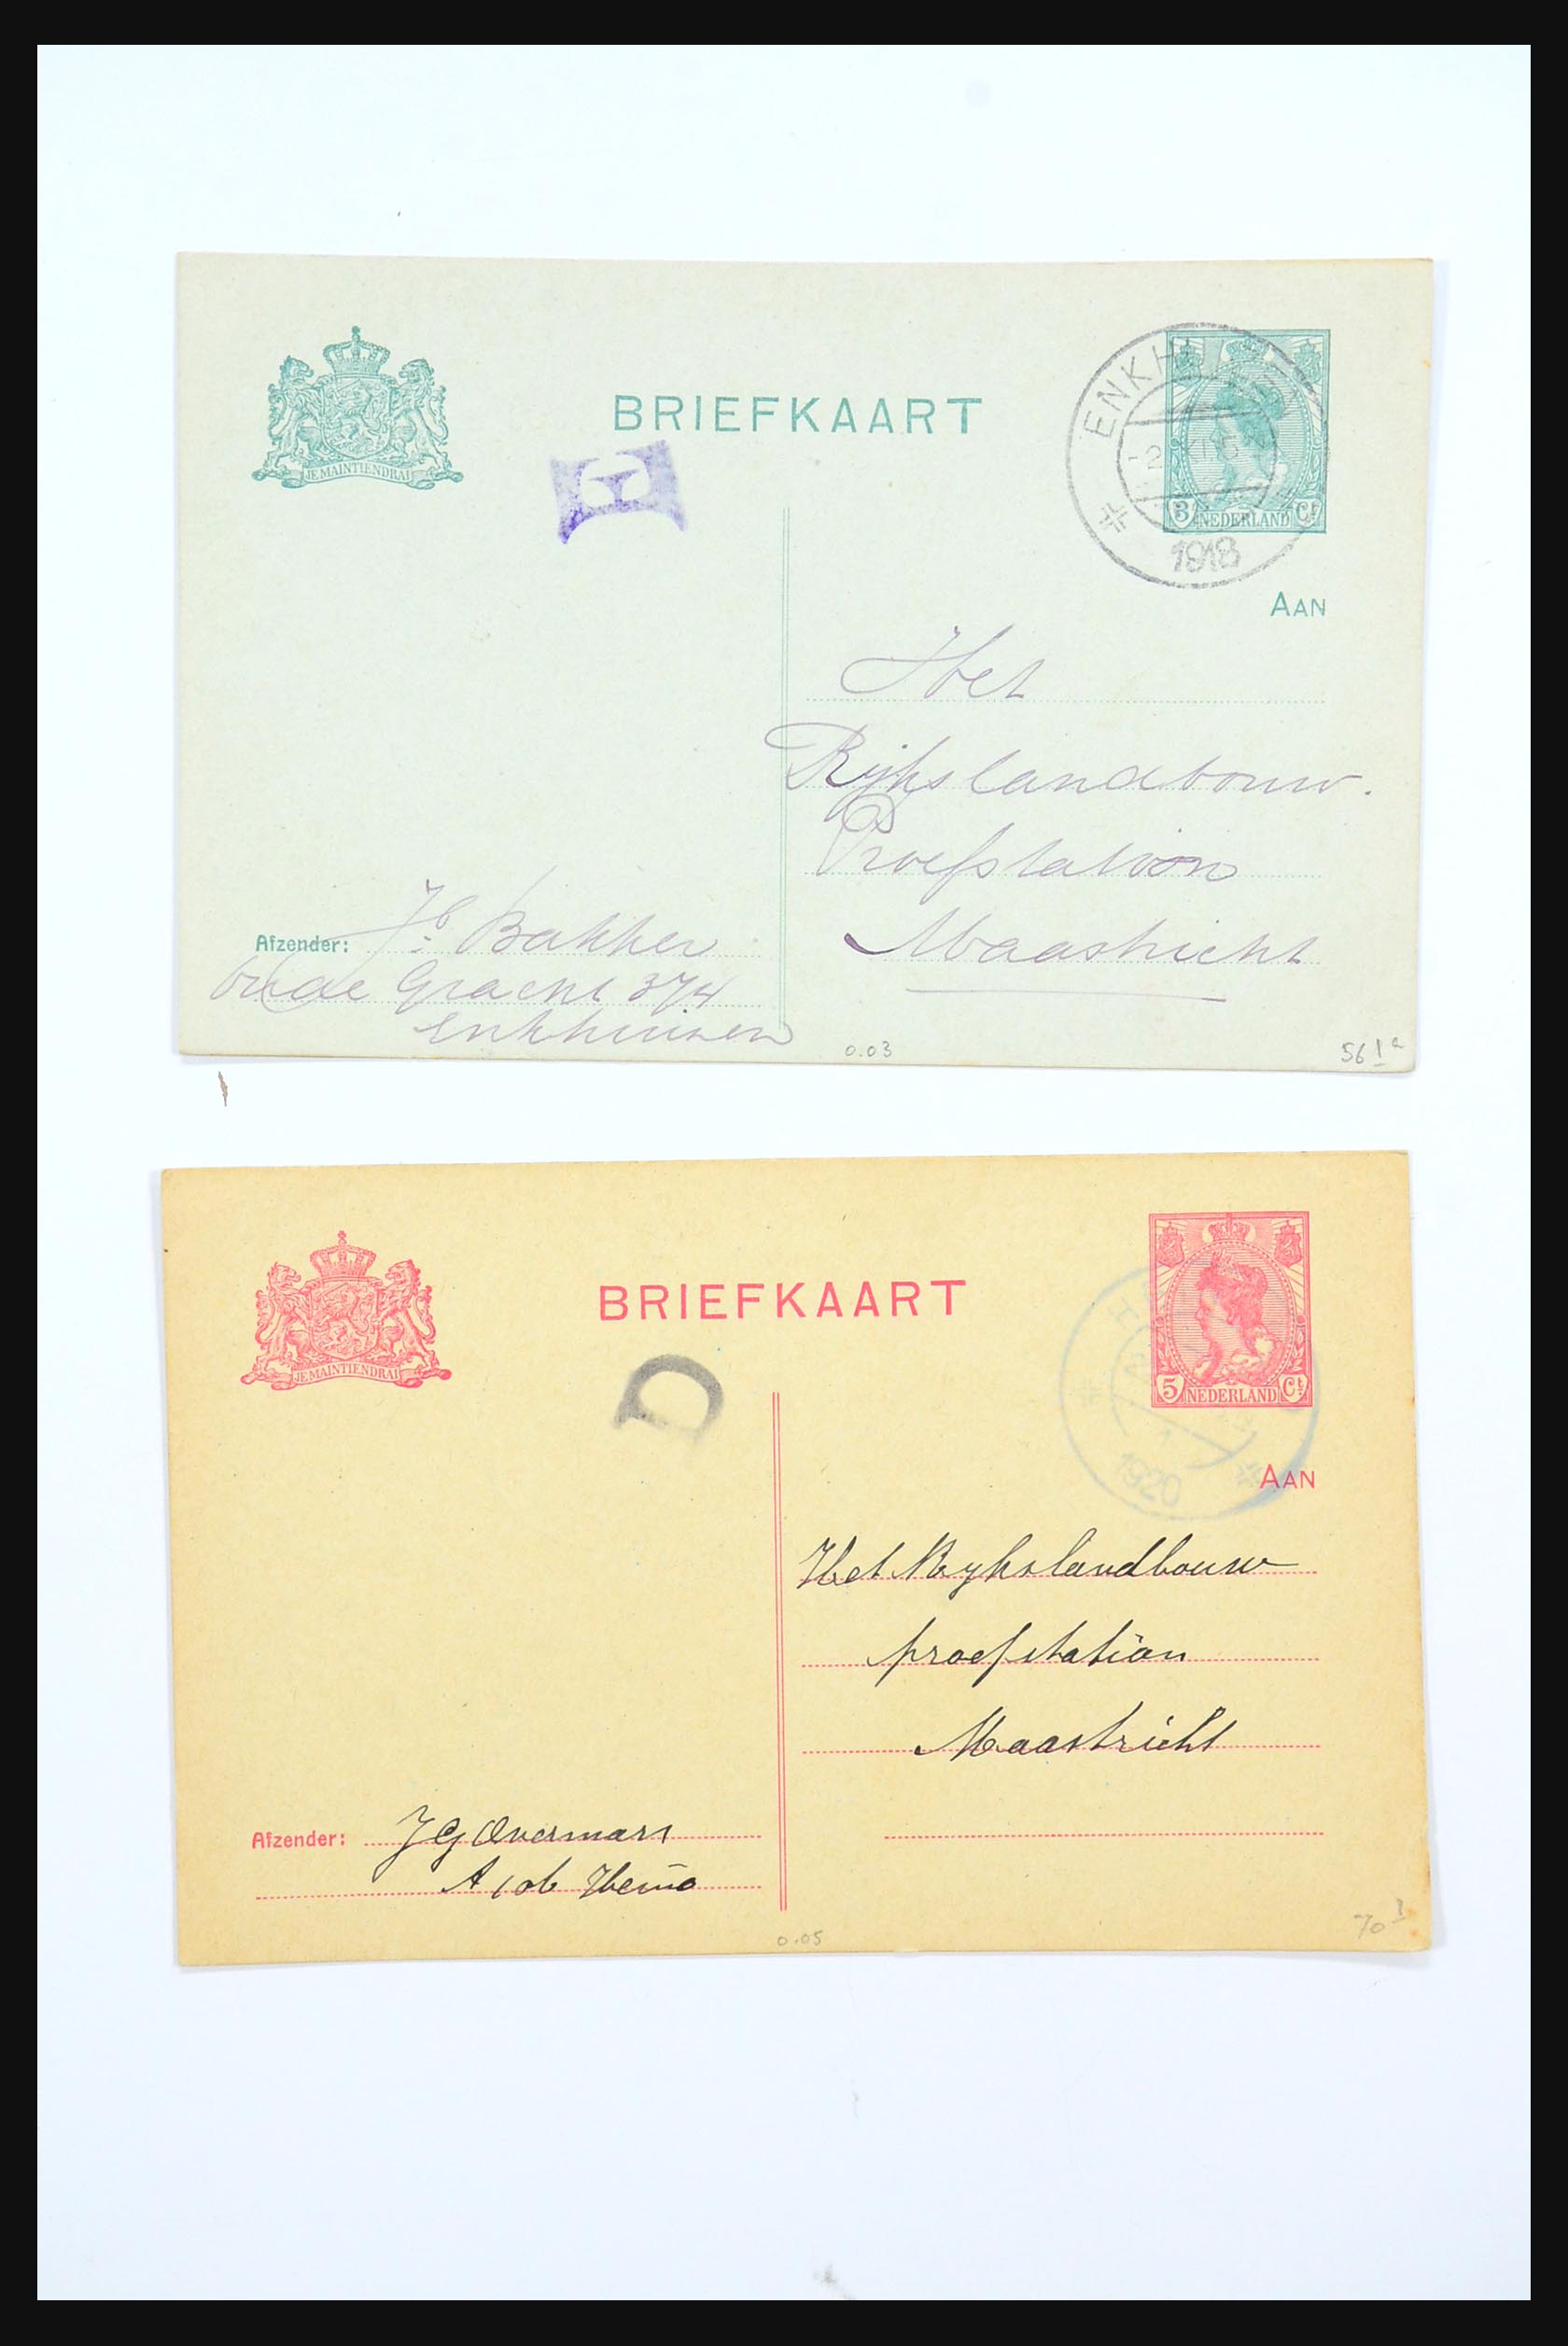 JE MAINTIENDRAI
BRIEFKAART
ENKH
1918
3 NEDERLAND Ct
AAN
Het
Rijkslandbouw.
Proefstation
Maastricht
Afzender: Jb Bakker
Oude Gracht 374
Enkhuizen
0.03
56 I a
JE MAINTIENDRAI
BRIEFKAART
D
H
1920
5 NEDERLAND Ct
AAN
Het Rykslandbouw
proefstation
Maastricht
Afzender: JG Overmars
0.05
70 I